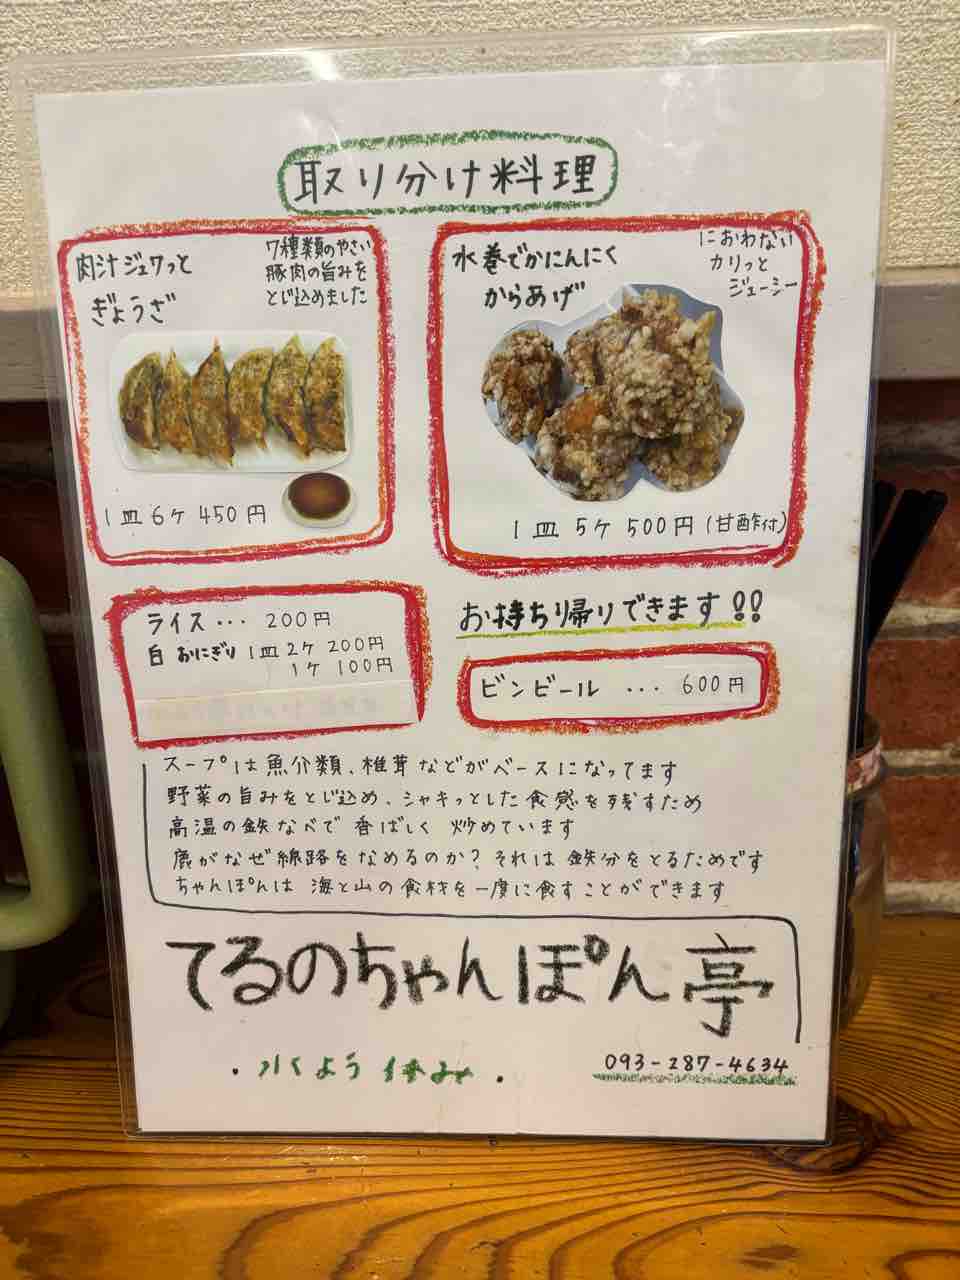 取り分け料理
肉汁ジュワっと
ぎょうざ
7種類のやさい
豚肉の旨みを
とじ込めました
1皿 6ケ 450円
水巻でかにんにく
からあげ
におわない
カリっと
ジューシー
1皿 5ケ 500円(甘酢付)
ライス・・・ 200円
白 おにぎり 1皿2ケ 200円
1ケ 100円
お持ち帰りできます!!
ビンビール ・・・ 600円
スープは魚介類、椎茸などがベースになってます
野菜の旨みをとじ込め、シャキッとした食感を残すため
高温の鉄なべで 香ばしく 炒めています
鹿がなぜ線路をなめるのか?それは 鉄分をとるためです
ちゃんぽんは 海と山の食材を一度に食すことができます
てるのちゃんぽん亭
・水くよう休み・
093-287-4634